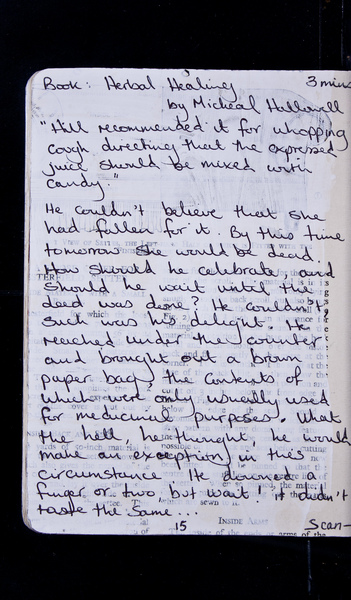 Book: Herbal Healing 3 mins
by Micheal Hallowell
"Hill recommended it for whopping
cough directing that the expressed
juice should be mixed with
candy."
He couldn't believe that she
had fallen for it. By this time
tomorrow she would be dead.
How should he celebrate and
should he wait until the
deed was done? He couldn't,
such was his delight. He
reached under the counter
and brought out a brown
paper bag, the contents of
which were only usually used
for medicinal purposes. What
the hell he thought, he would
make an exception in this
circumstance. He downed a
finger or two but wait! it didn't
taste the same...
15
INSIDE
Scan-